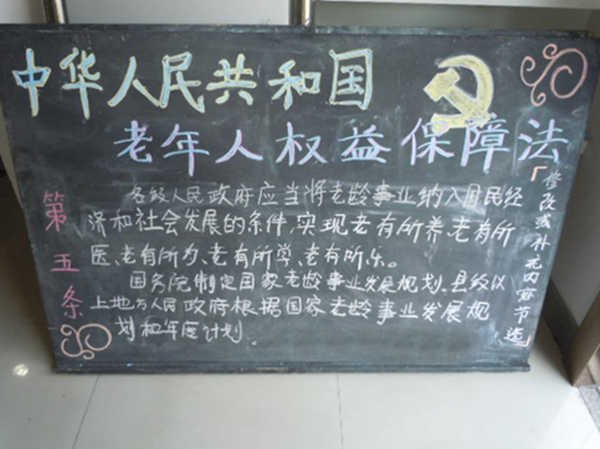 中华人民共和国
老年人权益保障法
『修改或补充内容节选』
第五条
各级人民政府应当将老龄事业纳入国民经
济和社会发展的条件,实现老有所养、老有所
医、老有所为、老有所学、老有所乐。
国务院制定国家老龄事业发展规划。县级以
上地方人民政府根据国家老龄事业发展规
划和年度计划.